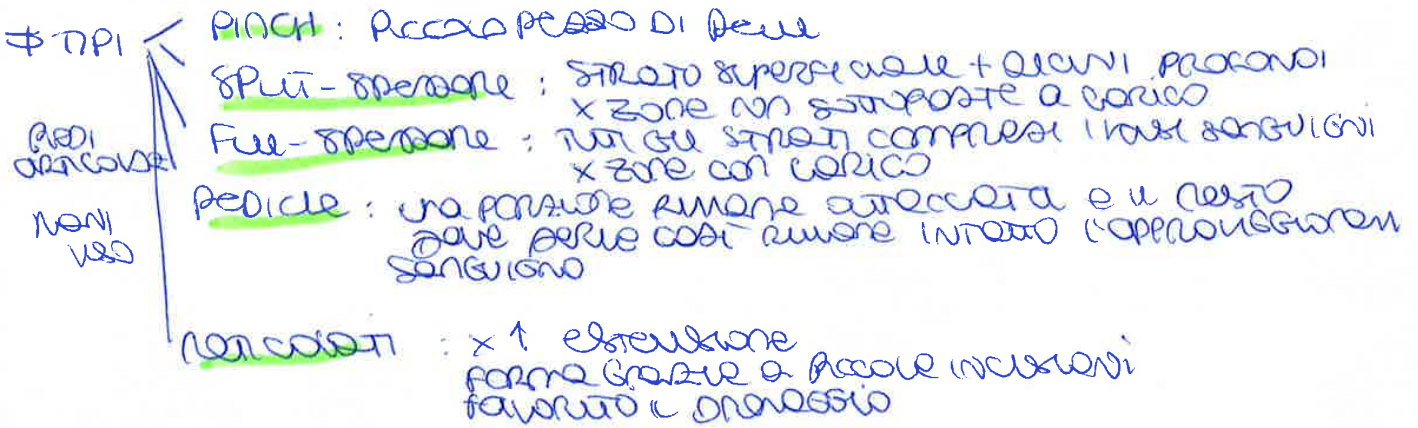 ≠ TIPI
PINCH: PICCOLO PEZZO DI PELLE
SPLIT-SPESSORE: STRATO SUPERFICIALE + ALCUNI PROFONDI
x ZONE NON SOTTOPOSTE A CARICO
FULL-SPESSORE: TUTTI GLI STRATI COMPRESI I VASI SANGUIGNI
x ZONE CON CARICO
PIEDI
ARTICOLAZ
MANI
VISO
PEDICLE: UNA PORZIONE RIMANE ATTACCATA E IL RESTO
DOVE SERVE COSÌ RIMANE INTATTO L'APPROVVIGGIONAM
SANGUIGNO
RETICOLATI: x ↑ ESTENSIONE
FORMA GRAZIE A PICCOLE INCISIONI
FAVORITO IL DRENAGGIO